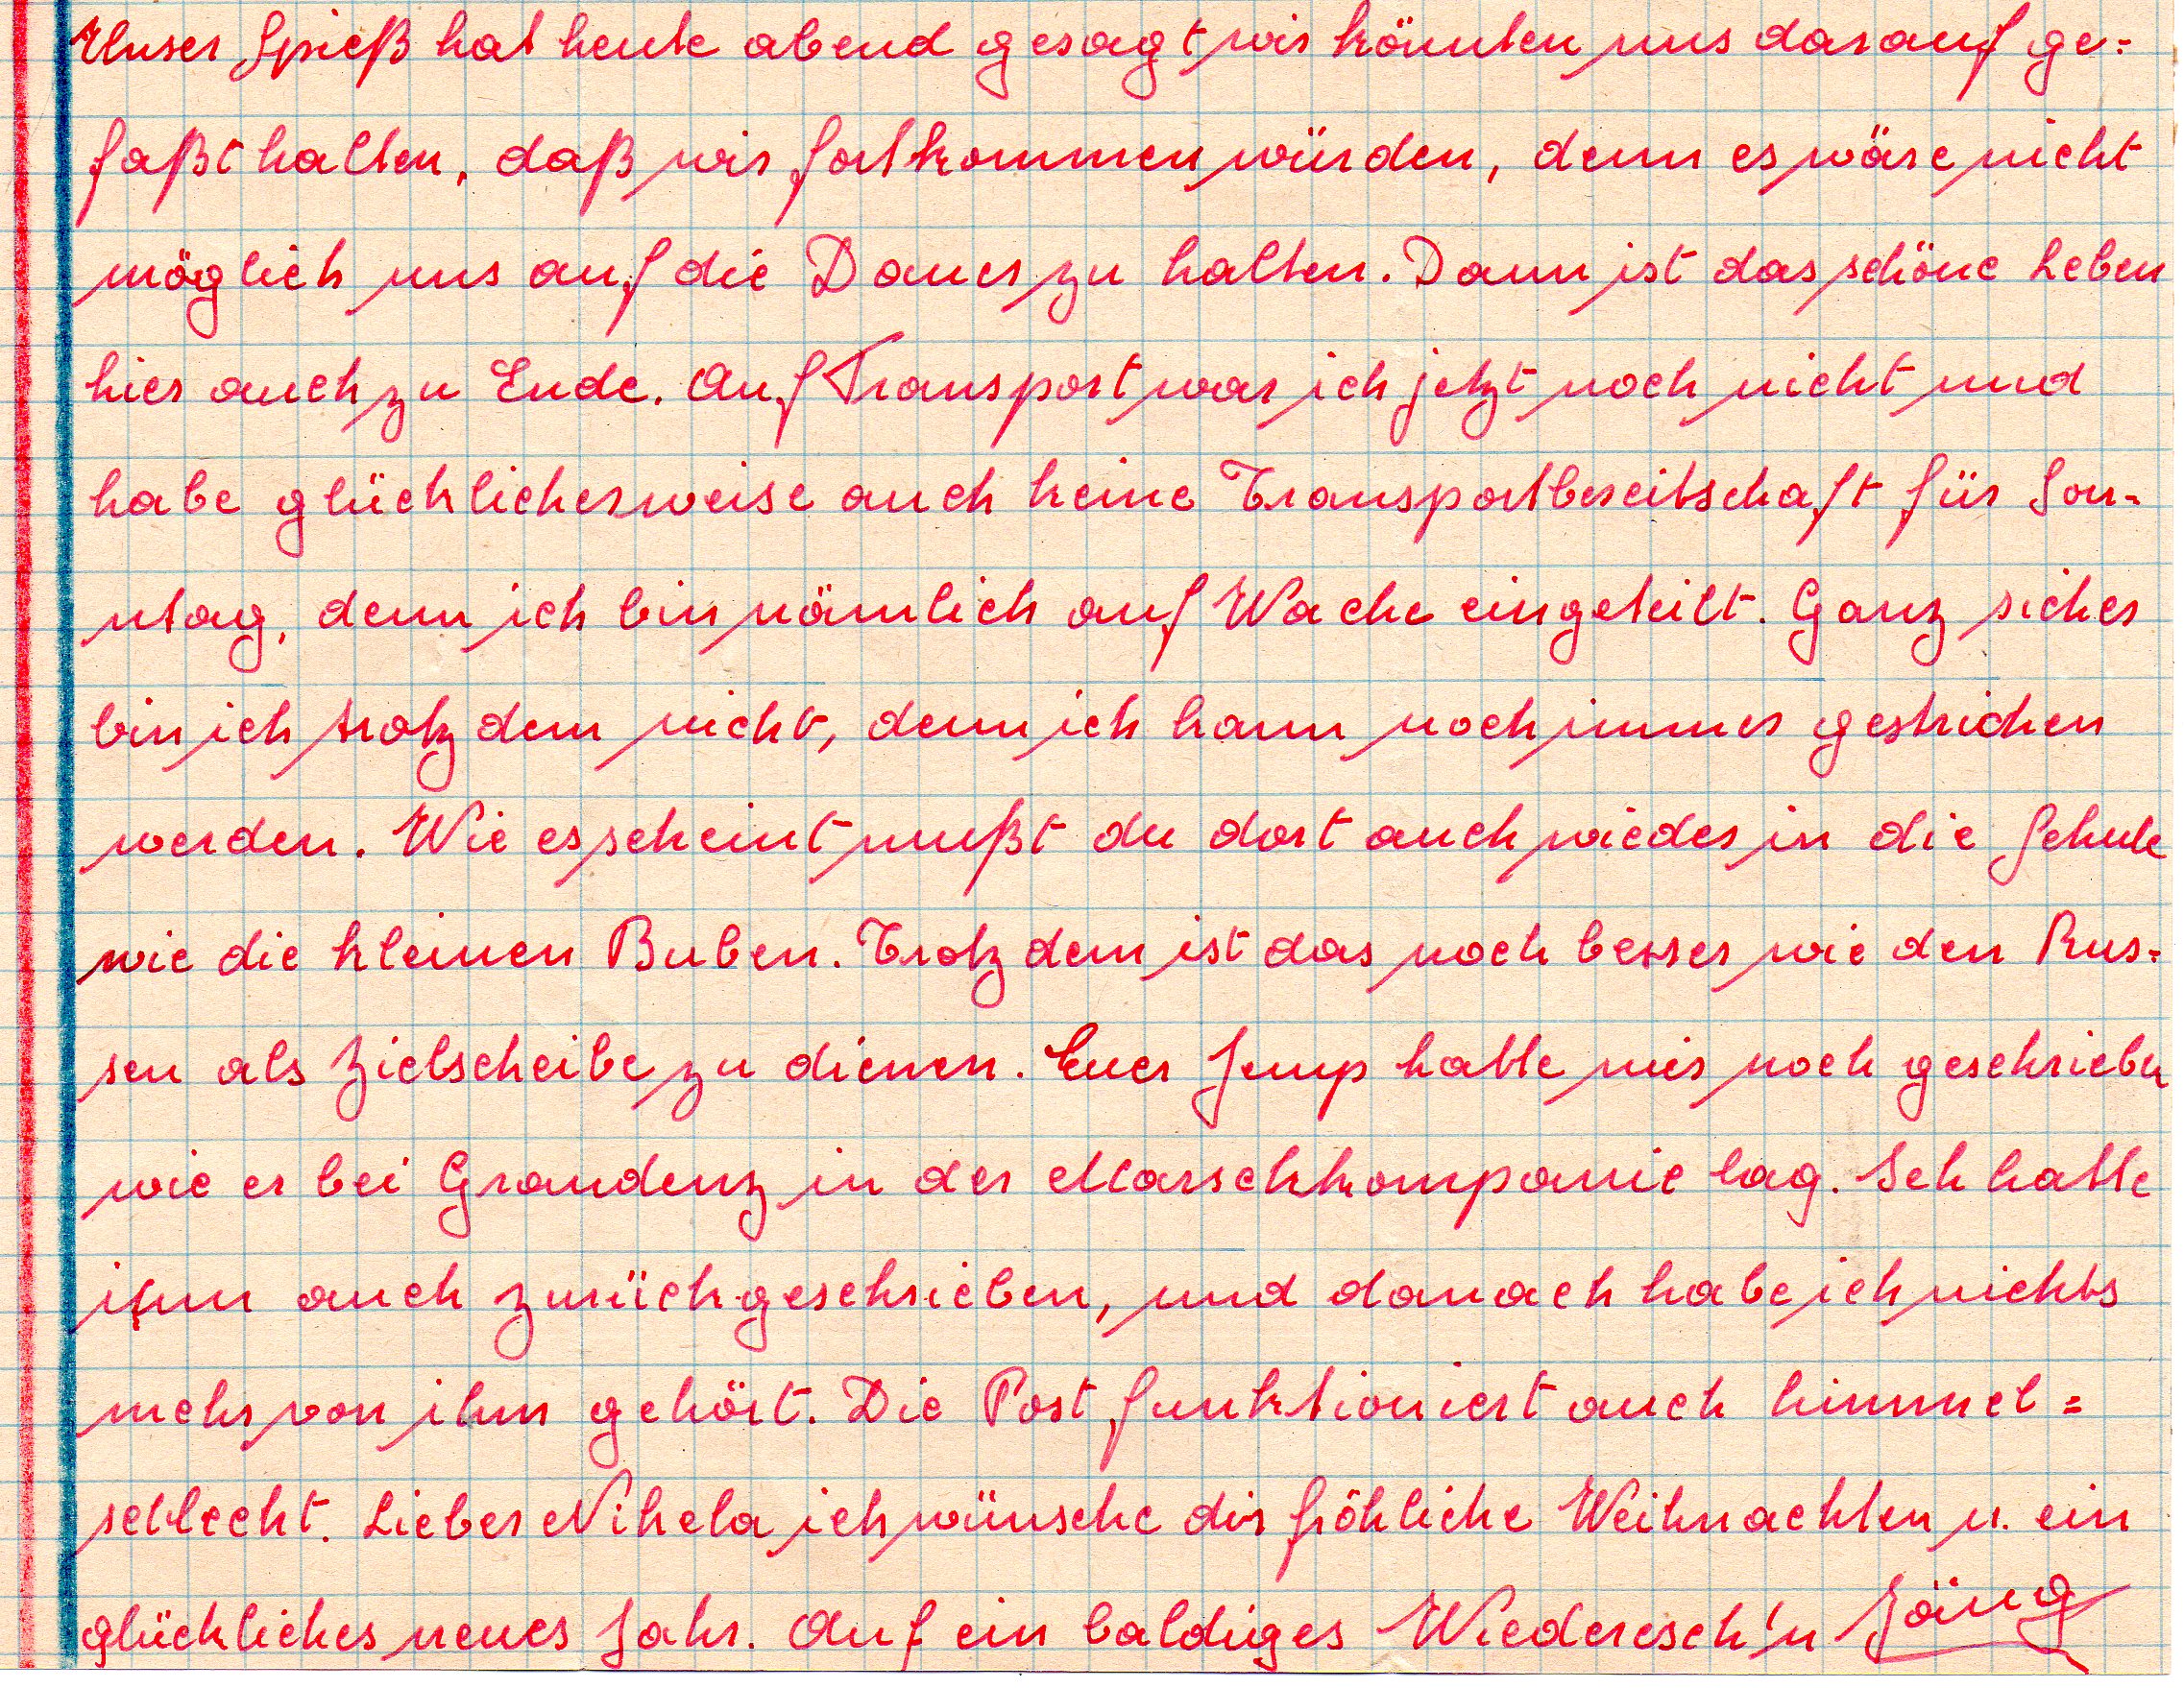 Unser Spieß hat heute abend gesagt wir könnten uns darauf ge=
faßt halten, daß wir fortkommen würden, denn es wäre nicht
möglich uns auf die Dauer zu halten. Dann ist das schöne Leben
hier auch zu Ende. Auf Transport war ich jetzt noch nicht und
habe glücklicherweise auch keine Transportbereitschaft für Son=
ntag, denn ich bin nämlich auf Wache eingeteilt. Ganz sicher
bin ich trotzdem nicht, denn ich kann noch immer gestrichen
werden. Wie es scheint mußt du dort auch wieder in die Schule
wie die kleinen Buben. Trotzdem ist das noch besser wie den Rus=
sen als Zielscheibe zu dienen. Euer Jemp hatte mir noch geschrieben
wie er bei Graudenz in der Marschkompanie lag. Ich hatte
ihm auch zurückgeschrieben, und danach habe ich nichts
mehr von ihm gehört. Die Post funktioniert auch himmel=
schlecht. Lieber Nikela ich wünsche dir fröhliche Weihnachten u. ein
glückliches neues Jahr. Auf ein baldiges Wiederesch'n